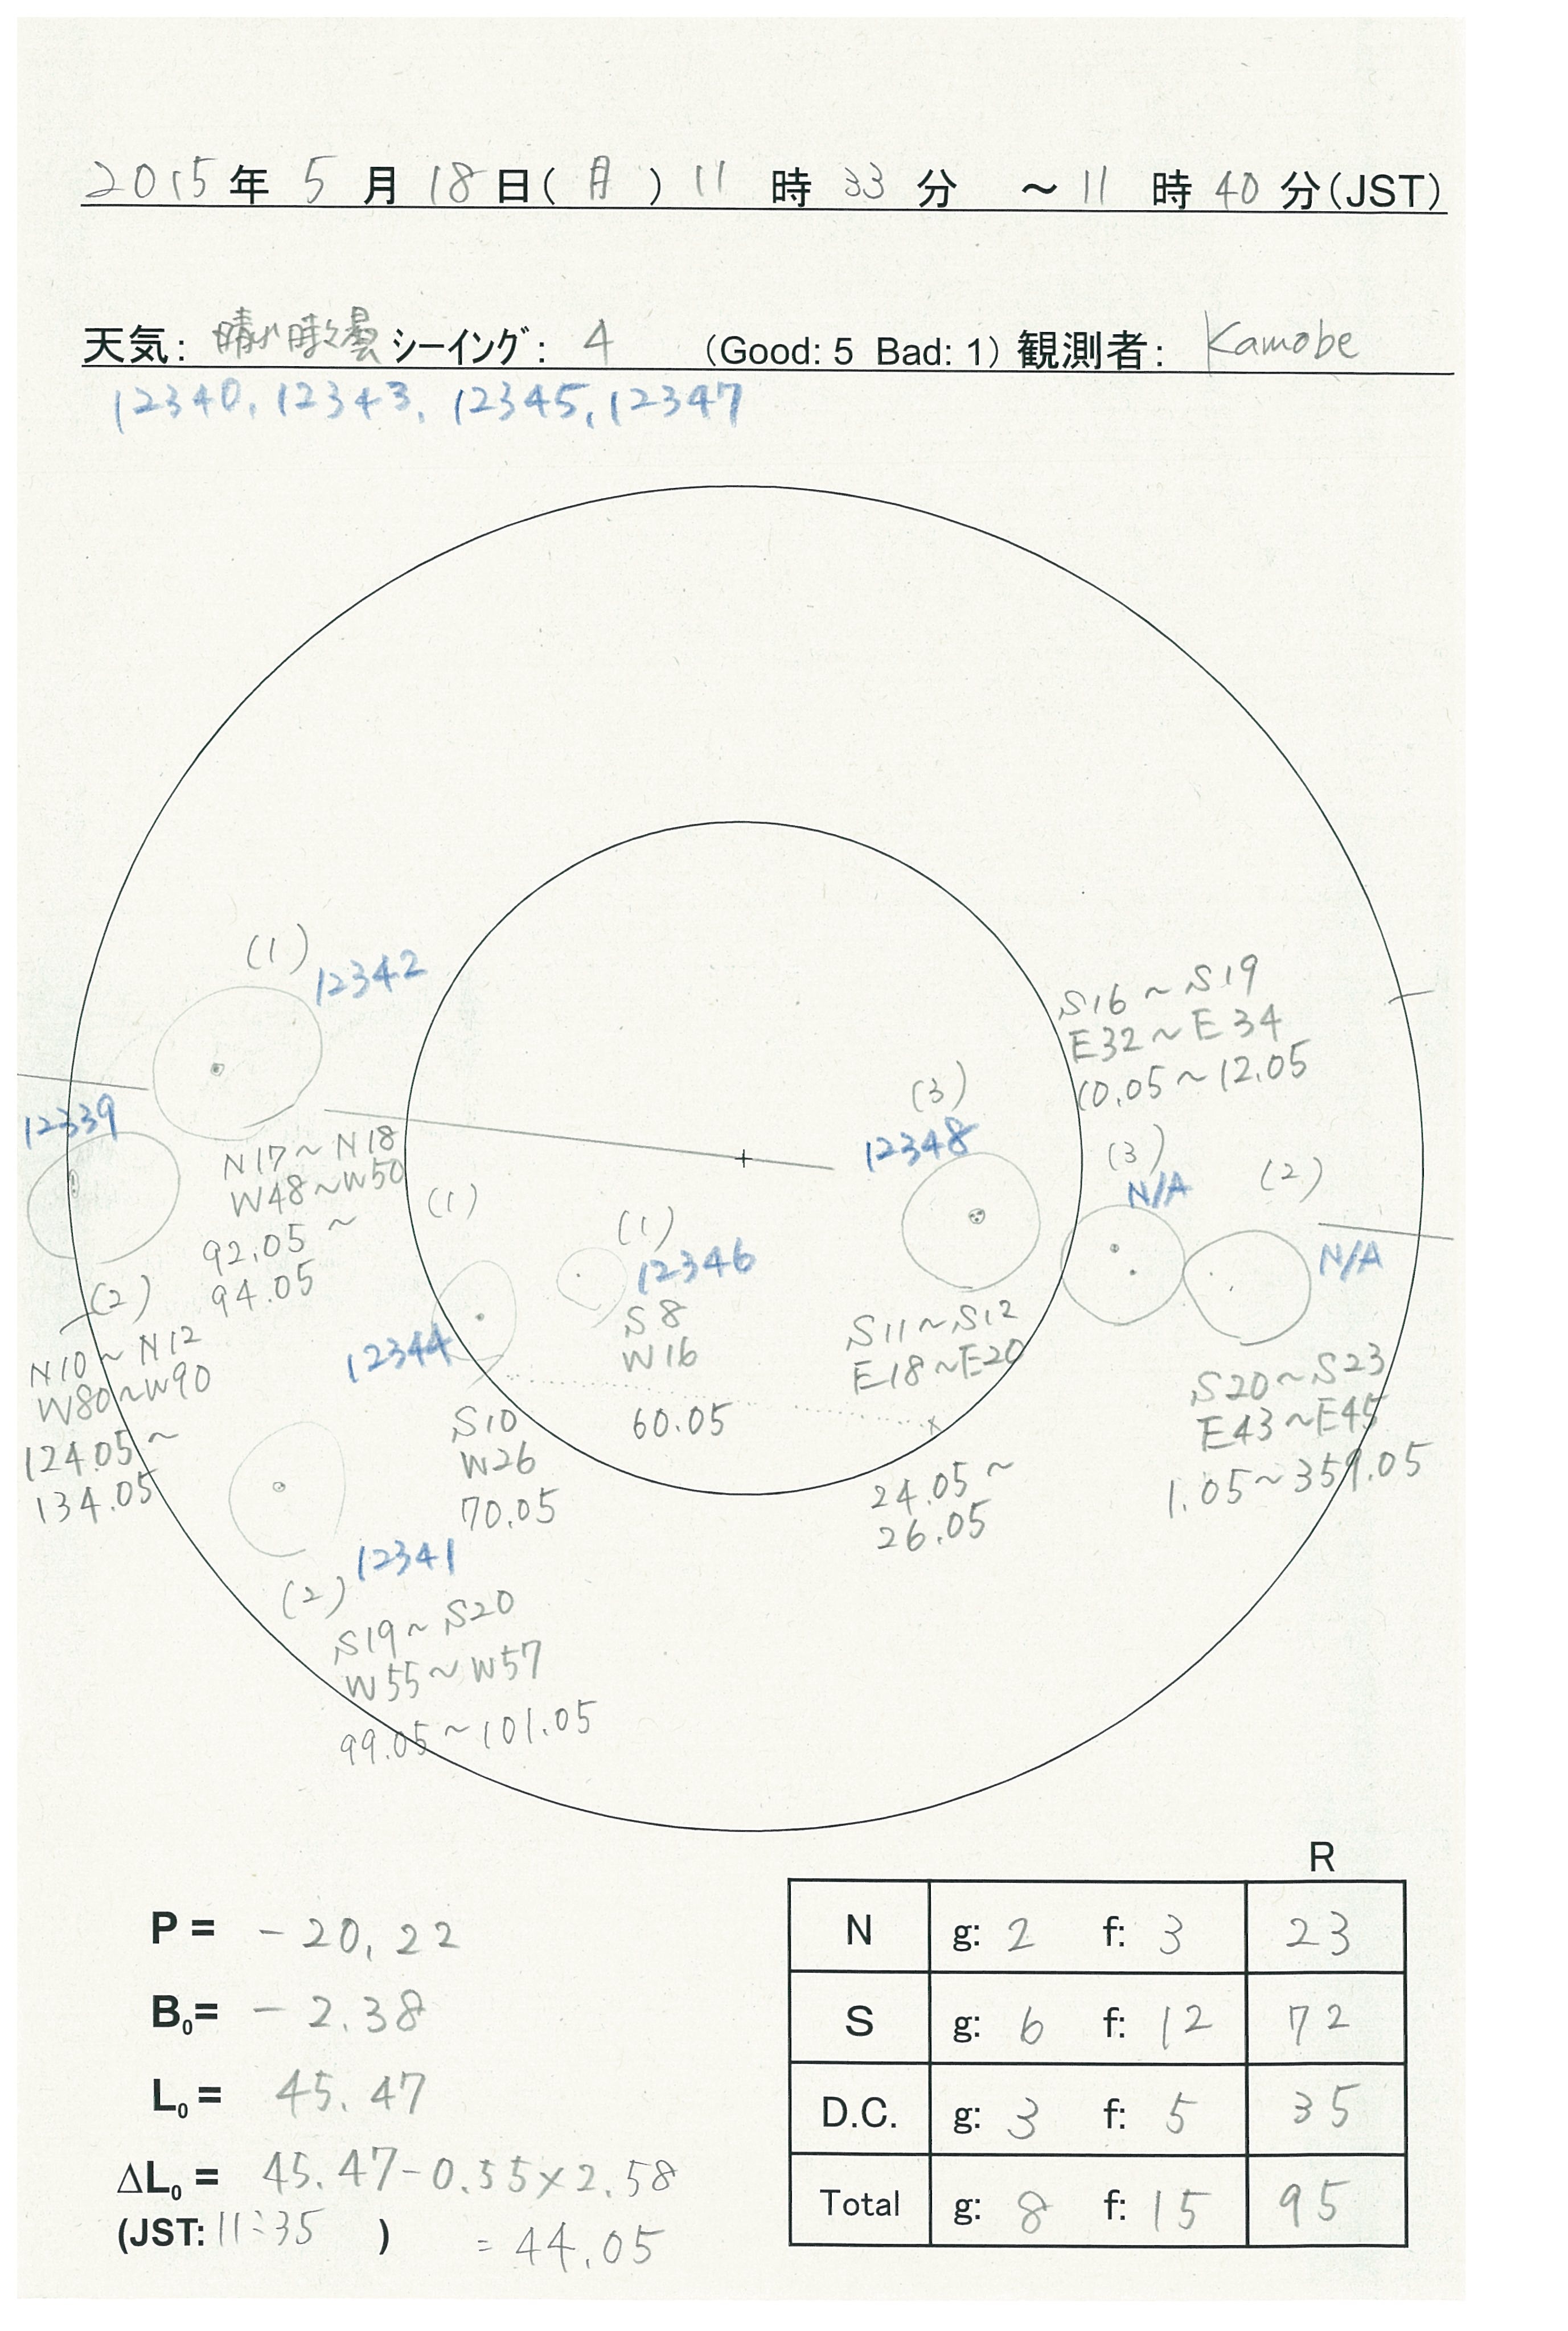 2015年 5 月 18 日( 月 ) 11 時 33 分 ～ 11 時 40 分(JST)
天気: 晴れ時々曇 シーイング: 4 (Good: 5 Bad: 1) 観測者: Kamobe
12340, 12343, 12345, 12347
(1)
12342
S16～S19
E32～E34
10.05～12.05
(3)
12348
(3)
N/A
(2)
N/A
12339
N17～N18
W48～W50
92.05～
94.05
(1)
(1)
12346
S8
W16
60.05
(2)
N10～N12
W80～W90
124.05～
134.05
12344
S10
W26
70.05
S11～S12
E18～E20
24.05～
26.05
S20～S23
E43～E45
1.05～359.05
12341
(2)
S19～S20
W55～W57
99.05～101.05
P = -20.22
B0= -2.38
L0 = 45.47
ΔL0 = 45.47-0.55×2.58
(JST: 11:35 ) = 44.05
R
N g: 2 f: 3 23
S g: 6 f: 12 72
D.C. g: 3 f: 5 35
Total g: 8 f: 15 95